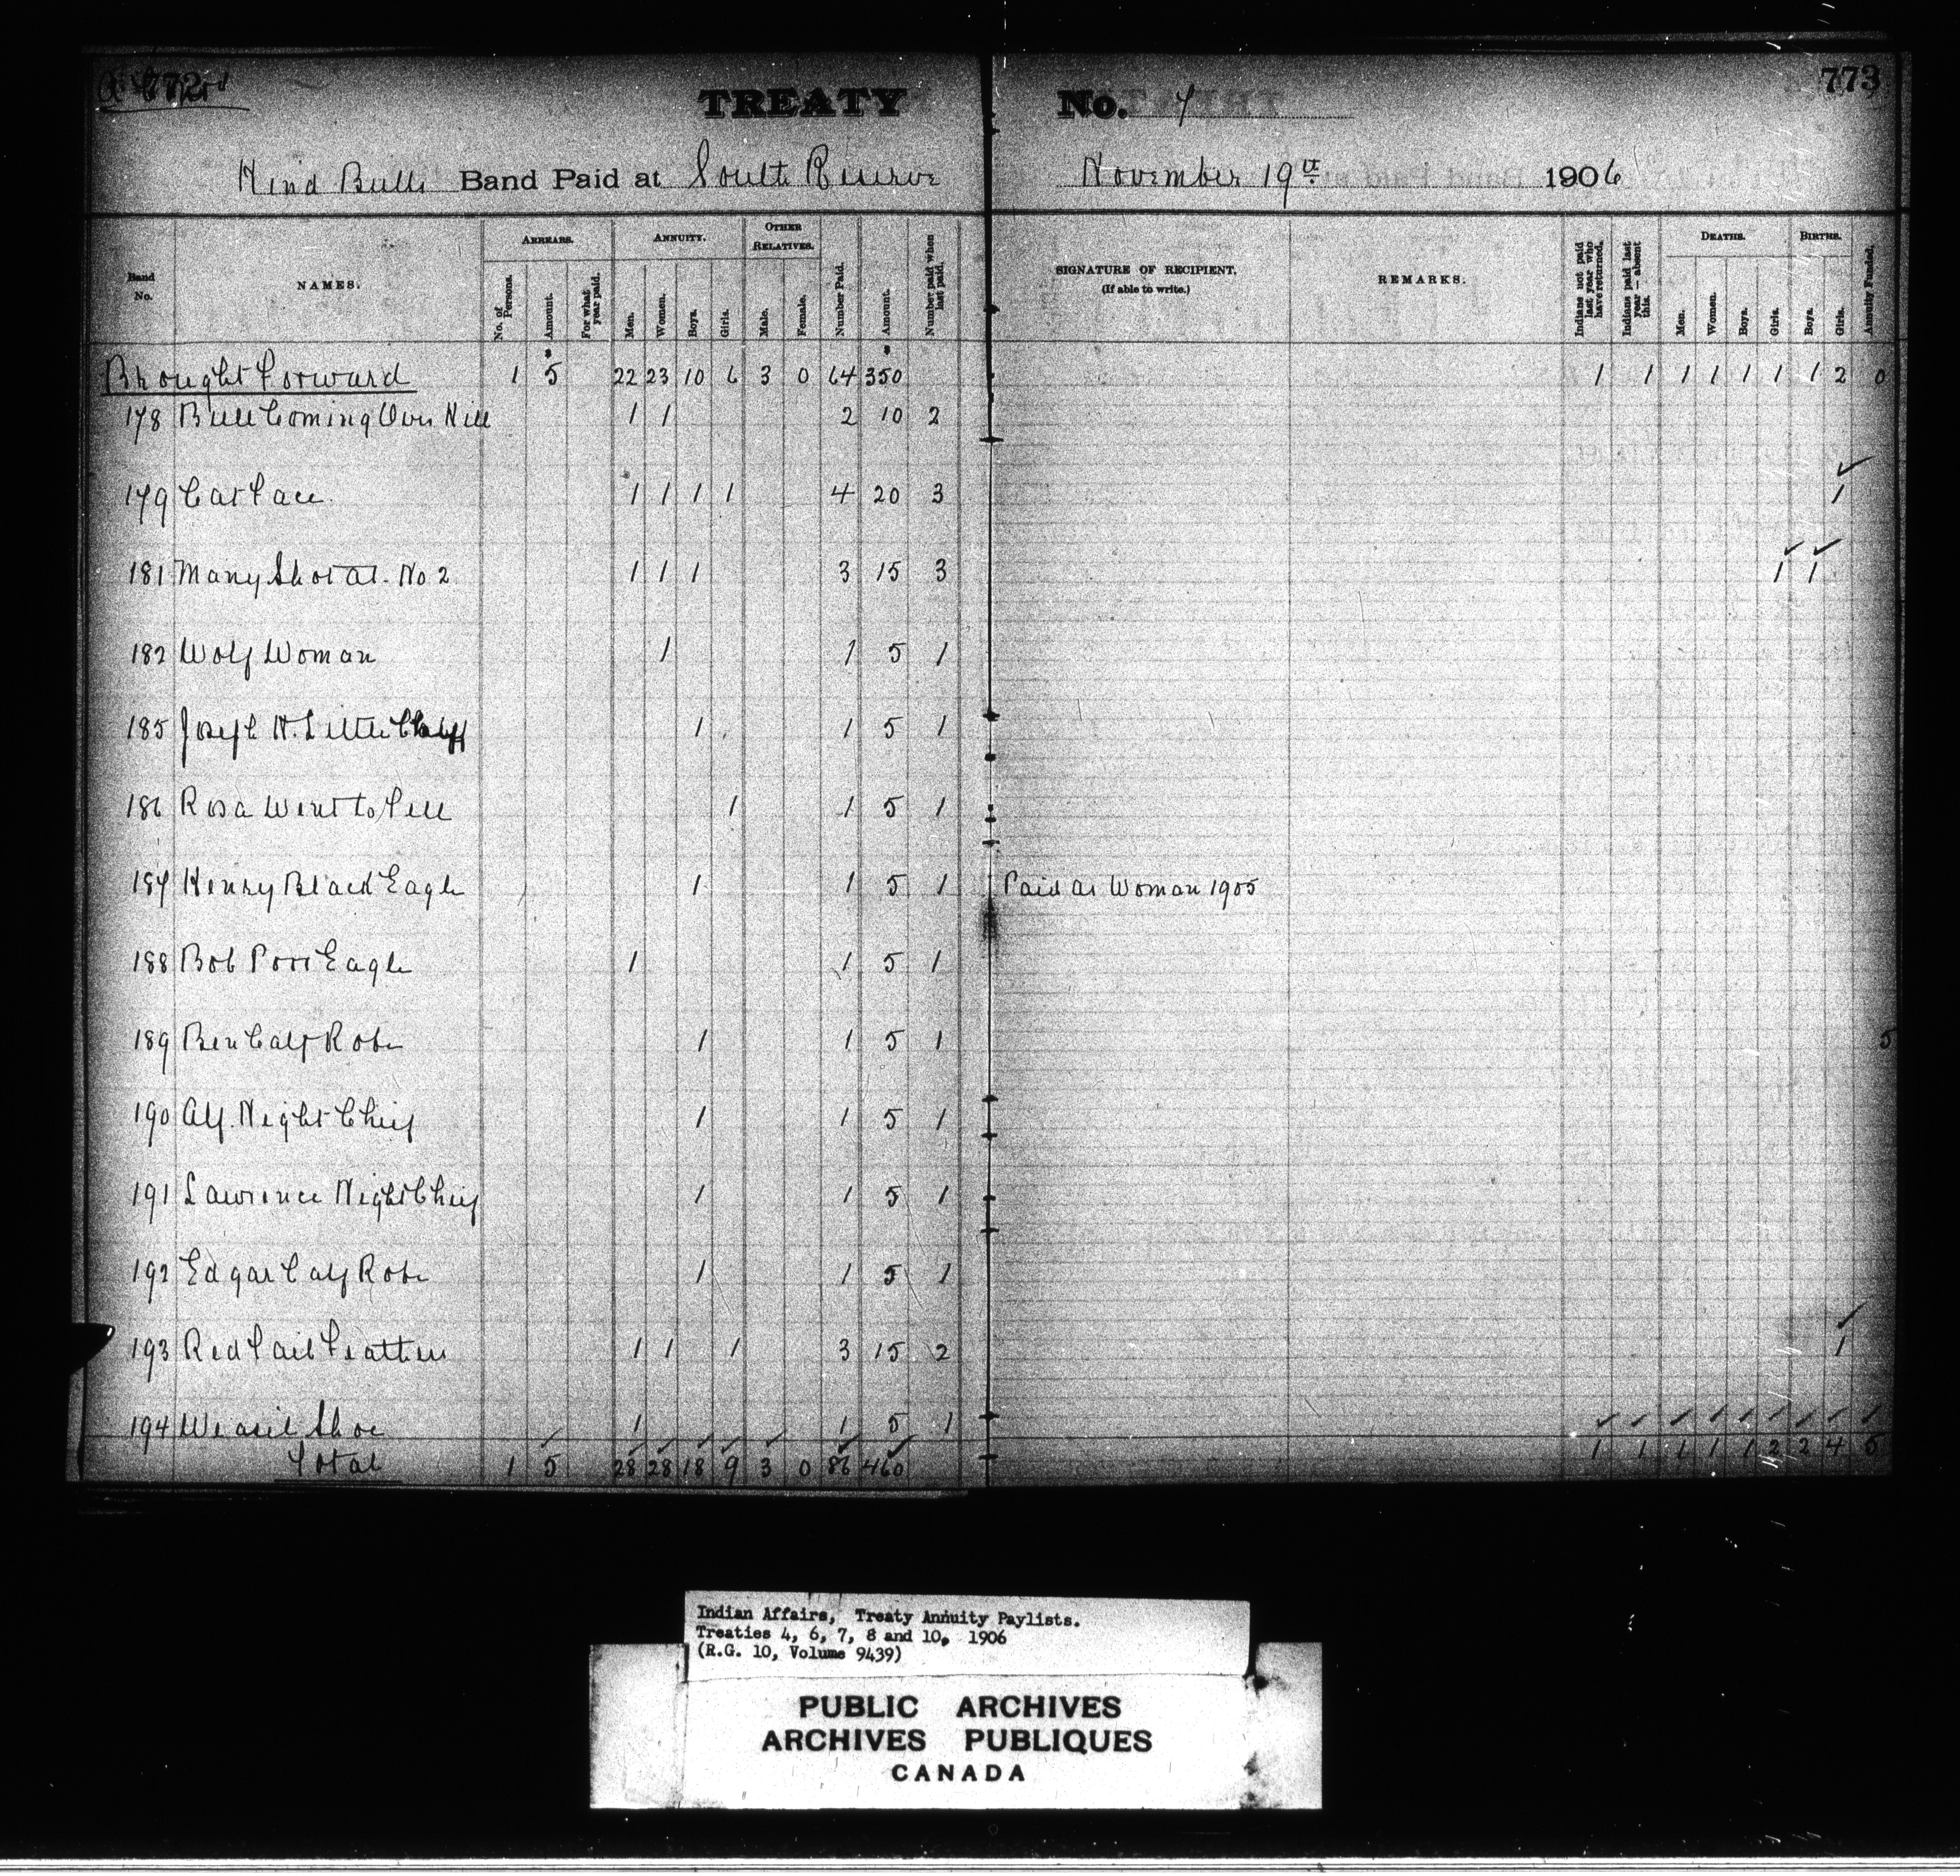 772
773
TREATY No. 7
Band Paid at South Reserve November 19th 1906
Band No.
NAMES.
ARREARS.
No. of Persons.
Amount.
For what year paid.
ANNUITY.
Men.
Women.
Boys.
Girls.
OTHER RELATIVES.
Male.
Female.
Number Paid.
Amount.
Number paid when last paid.
SIGNATURE OF RECIPIENT.
(If able to write.)
REMARKS.
Indians not paid last year who have returned.
Indians paid last year—absent this.
DEATHS.
Men.
Women.
Boys.
Girls.
BIRTHS.
Boys.
Girls.
Annuity Funded.
Brought Forward 1 5 22 23 10 6 3 0 64 350 1 1 1 1 1 1 1 2 0
178 Bull Coming Over Hill 1 1 2 10 2
179 Cat Face 1 1 1 1 4 20 3 1
181 Many Shot at. No 2 1 1 1 3 15 3 1 1
182 Wolf Woman 1 1 5 1
185 Joseph N. Little 1 1 5 1
186 Rosa Went to 1 1 5 1
187 Henry Black Eagle 1 1 5 1 Paid as Woman 1905
188 Bob Poor Eagle 1 1 5 1
189 Ben Calf Robe 1 1 5 1 5
190 Alf. Night Chief 1 1 5 1
191 Lawrence Night Chief 1 1 5 1
192 Edgar Calf Robe 1 1 5 1
193 Red Tail Feathers 1 1 1 3 15 2 1
194 Weasel Shoe 1 1 5 1
Total 1 5 28 28 18 9 3 0 86 460 1 1 1 1 1 2 2 4 5
Indian Affairs, Treaty Annuity Paylists.
Treaties 4, 6, 7, 8 and 10, 1906
(R.G. 10, Volume 9439)
PUBLIC ARCHIVES
ARCHIVES PUBLIQUES
CANADA